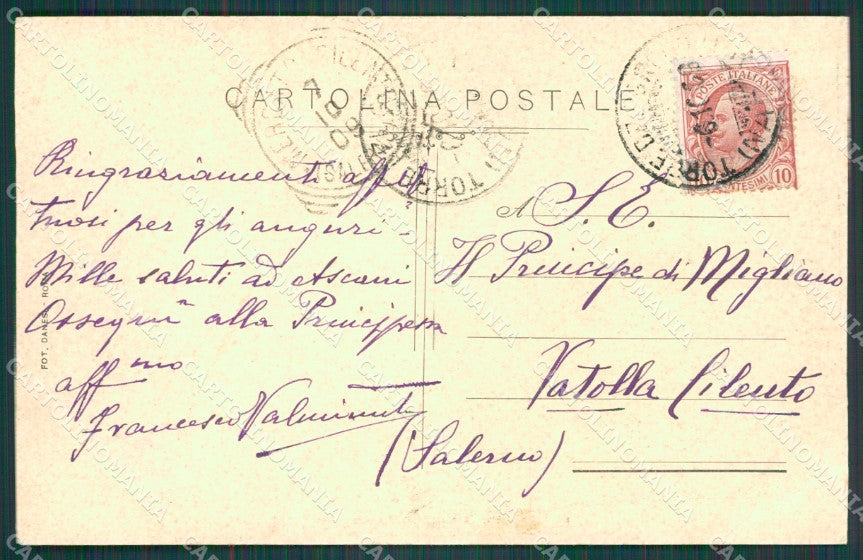 CARTOLINA POSTALE
Ringraziamenti affet
tuosi per gli auguri.
Mille saluti ad Ascani
Ossequi alla Principessa
aff mo
Francesco
A S. E.
Il Principe di Migliano
Vatolla Cilento
(Salerno)
POSTE ITALIANE
10
CENTESIMI
FOT. DANESI, ROMA
CARTOLINOMANIA